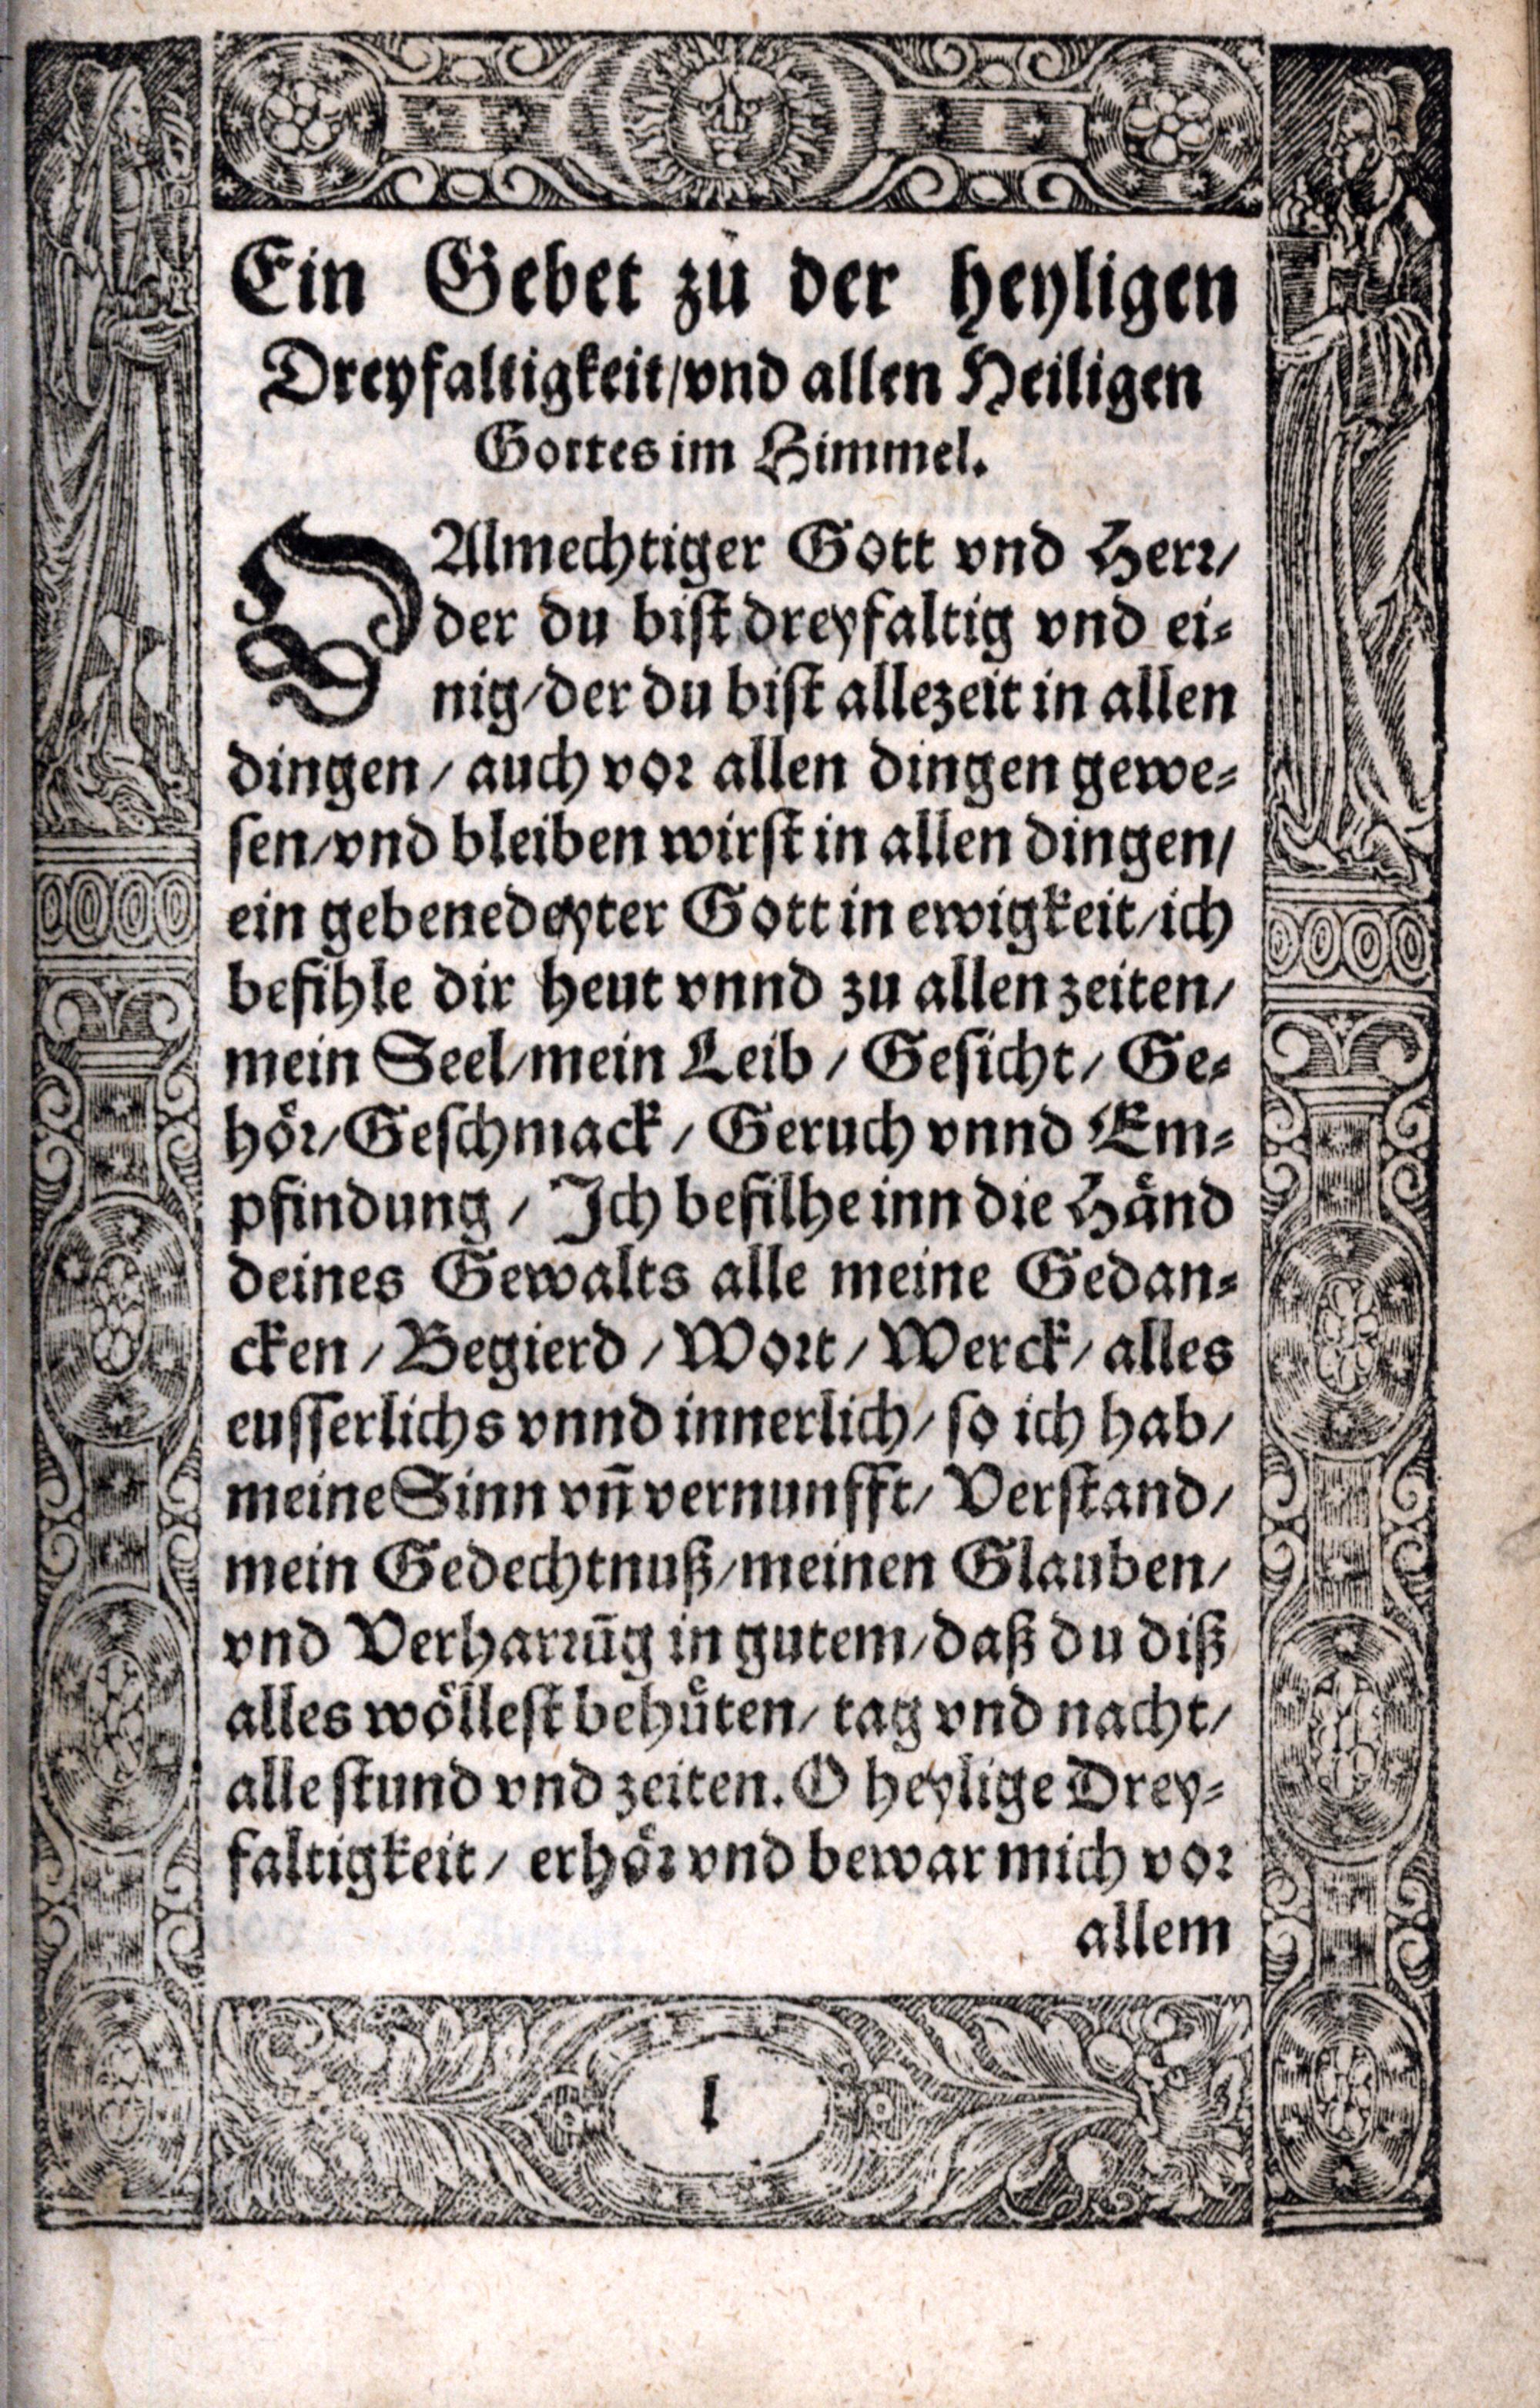 Ein Gebet zů der heyligen
Dreyfaltigkeit/vnd allen Heiligen
Gottes im Himmel.
O Almechtiger Gott vnd Herr/
der du bist dreyfaltig vnd ei⸗
nig/der du bist allezeit in allen
dingen/auch vor allen dingen gewe⸗
sen/vnd bleiben wirst in allen dingen/
ein gebenedeyter Gott in ewigkeit/ich
befihle dir heut vnnd zu allen zeiten/
mein Seel/mein Leib/Gesicht/Ge⸗
hoͤr/Geschmack/Geruch vnnd Em⸗
pfindung/Ich befilhe inn die Haͤnd
deines Gewalts alle meine Gedan⸗
cken/Begierd/Wort/Werck/alles
eusserlichs vnnd innerlich/so ich hab/
meine Sinn vn̄ vernunfft/Verstand/
mein Gedechtnuß/meinen Glauben/
vnd Verharrūg in gutem/daß du diß
alles woͤllest behuͤten/tag vnd nacht/
alle stund vnd zeiten. O heylige Drey⸗
faltigkeit/erhoͤr vnd bewar mich vor
allem
I